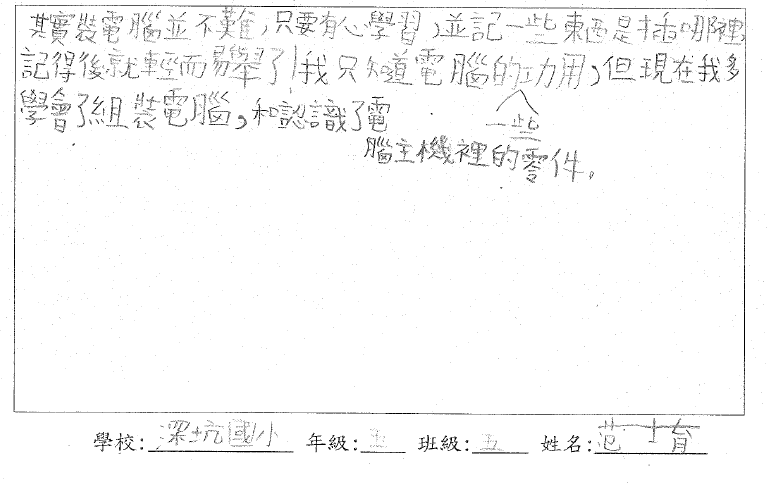 其實裝電腦並不難,只要有心學習,並記一些東西是插哪裡,
記得後就輕而易舉了!我只知道電腦的功用,但現在我多
學會了組裝電腦,和認識了電
一些
腦主機裡的零件。
學校:深坑國小 年級:五 班級:五 姓名:范士育